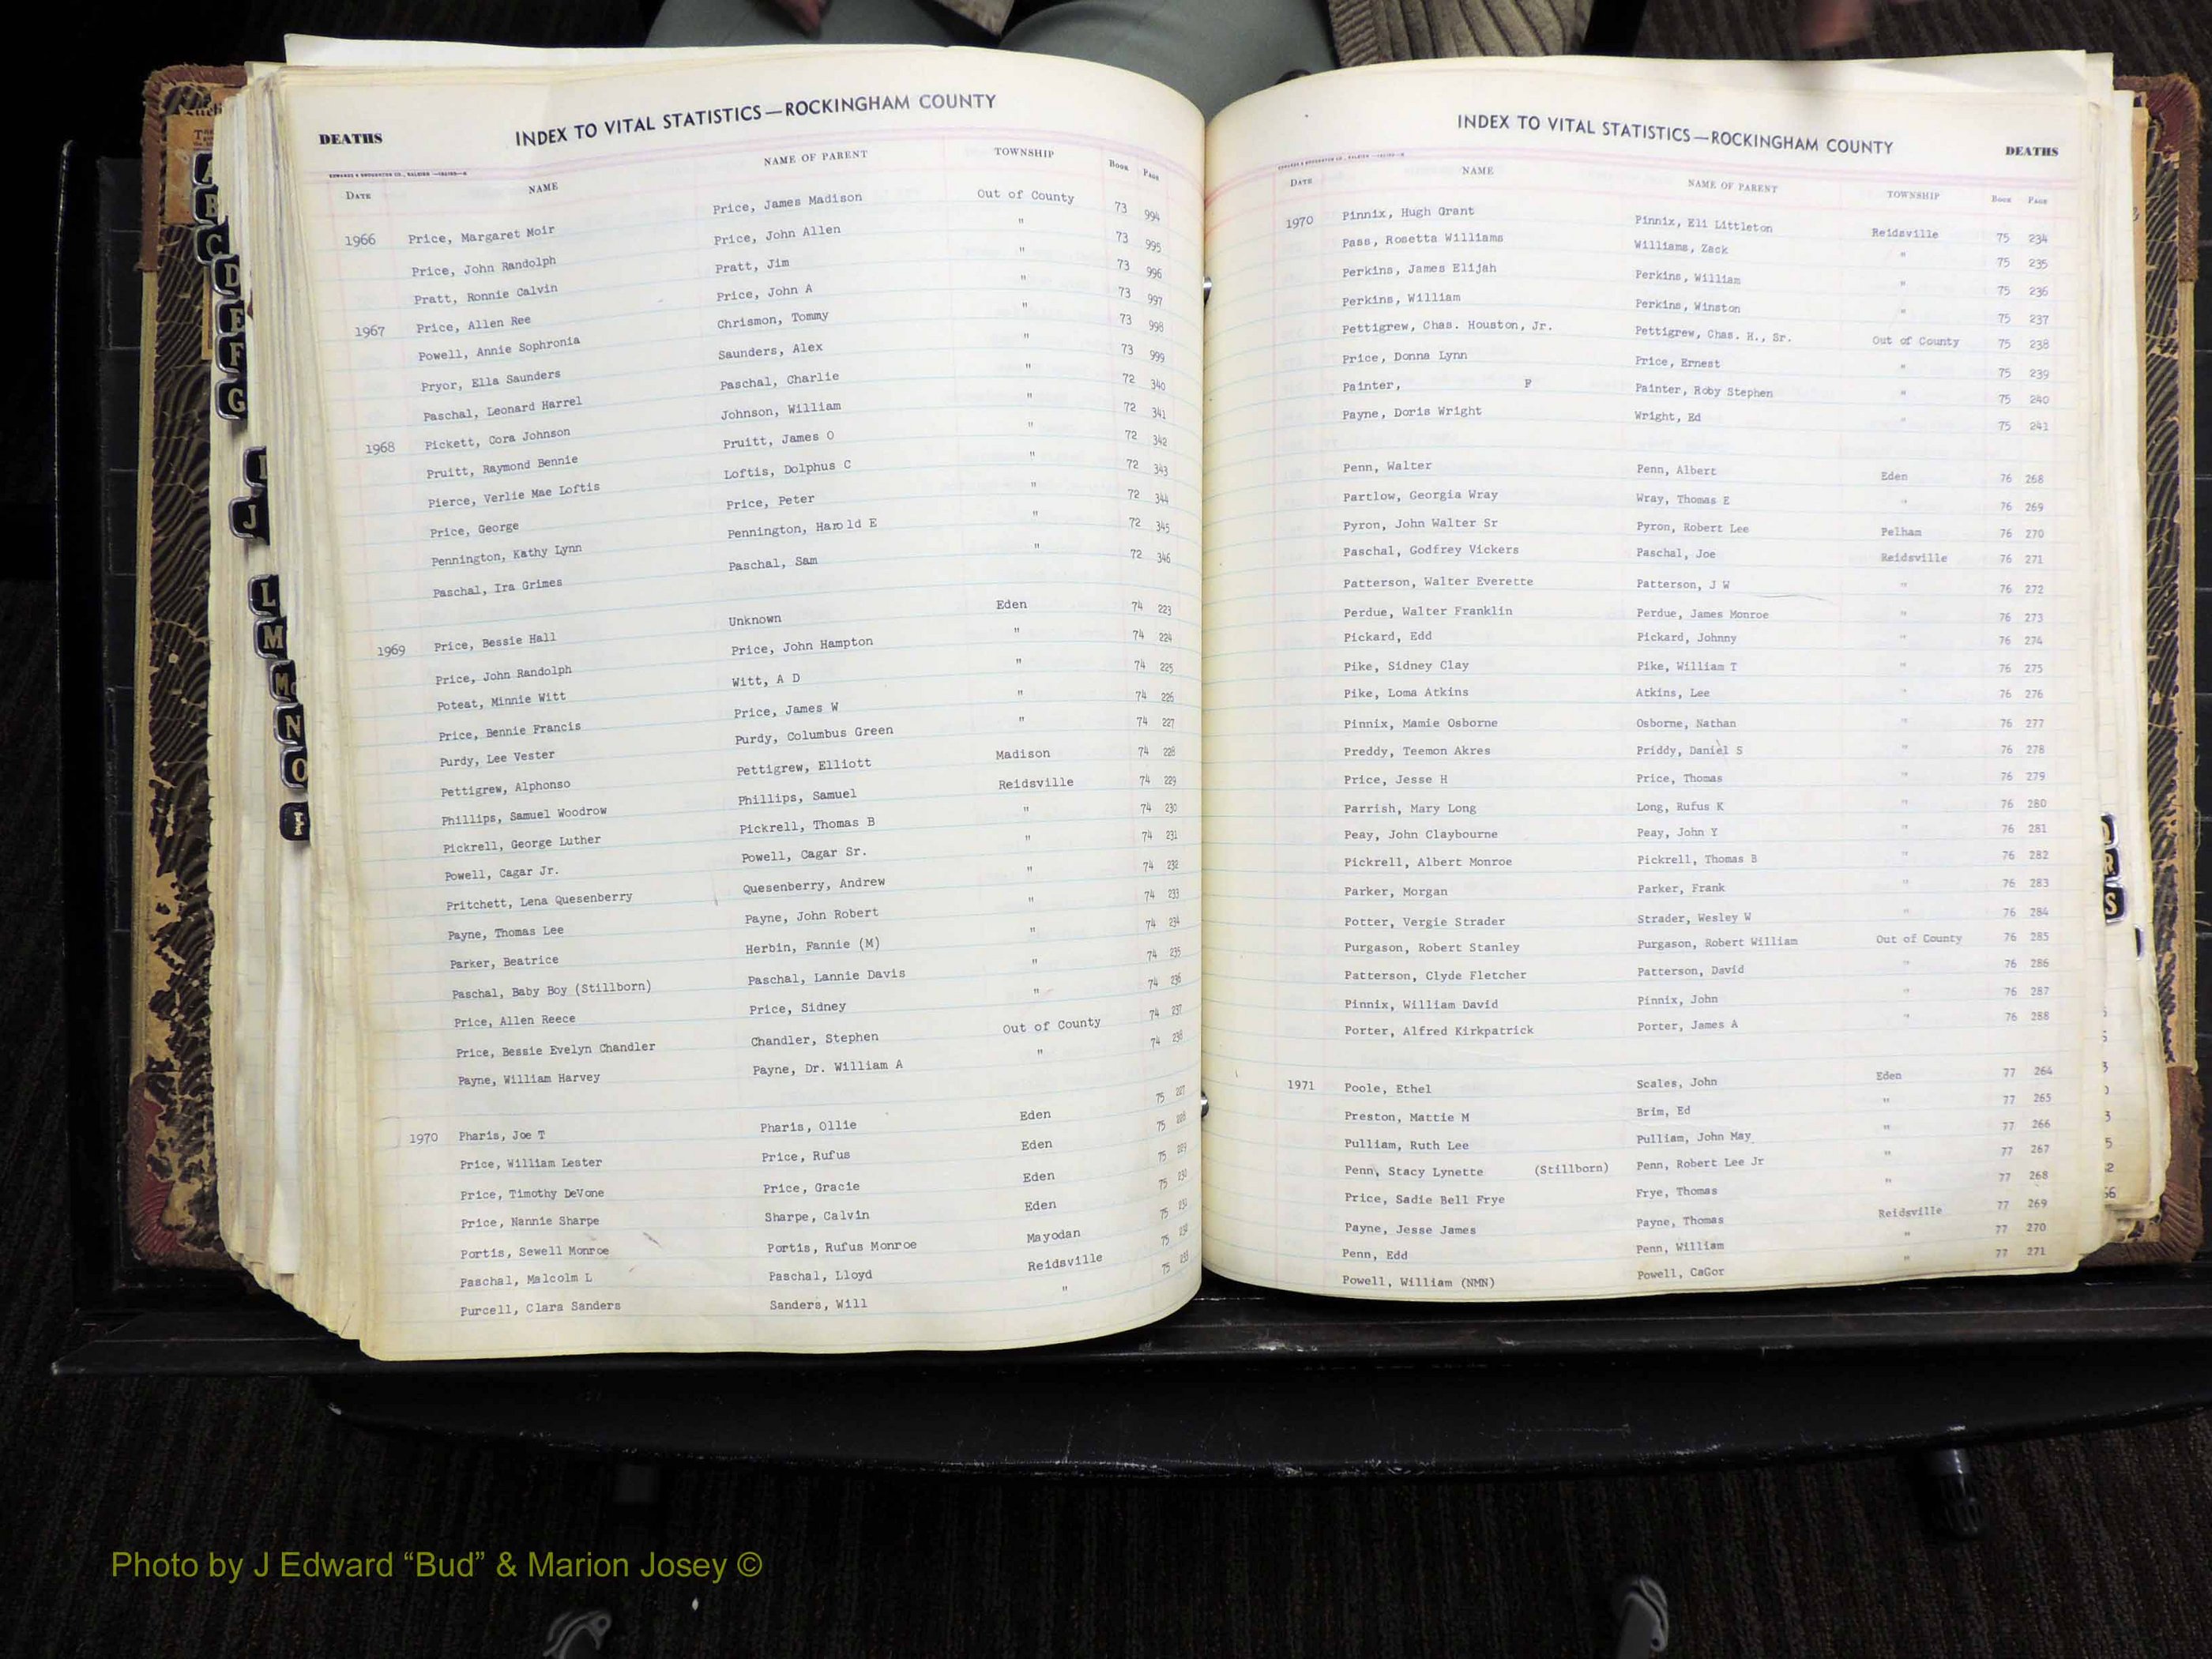 DEATHS INDEX TO VITAL STATISTICS—ROCKINGHAM COUNTY
DATE NAME NAME OF PARENT TOWNSHIP BOOK PAGE
1966 Price, Margaret Moir Price, James Madison Out of County 73 994
Price, John Randolph Price, John Allen " 73 995
Pratt, Ronnie Calvin Pratt, Jim " 73 996
1967 Price, Allen Ree Price, John A " 73 997
Powell, Annie Sophronia Chrismon, Tommy " 73 998
Pryor, Ella Saunders Saunders, Alex " 73 999
Paschal, Leonard Harrel Paschal, Charlie " 72 340
1968 Pickett, Cora Johnson Johnson, William " 72 341
Pruitt, Raymond Bennie Pruitt, James O " 72 342
Pierce, Verlie Mae Loftis Loftis, Dolphus C " 72 343
Price, George Price, Peter " 72 344
Pennington, Kathy Lynn Pennington, Harold E " 72 345
Paschal, Ira Grimes Paschal, Sam " 72 346
1969 Price, Bessie Hall Unknown Eden 74 223
Price, John Randolph Price, John Hampton " 74 224
Poteat, Minnie Witt Witt, A D " 74 225
Price, Bennie Francis Price, James W " 74 226
Purdy, Lee Vester Purdy, Columbus Green " 74 227
Pettigrew, Alphonso Pettigrew, Elliott Madison 74 228
Phillips, Samuel Woodrow Phillips, Samuel Reidsville 74 229
Pickrell, George Luther Pickrell, Thomas B " 74 230
Powell, Cagar Jr. Powell, Cagar Sr. " 74 231
Pritchett, Lena Quesenberry Quesenberry, Andrew " 74 232
Payne, Thomas Lee Payne, John Robert " 74 233
Parker, Beatrice Herbin, Fannie (M) " 74 234
Paschal, Baby Boy (Stillborn) Paschal, Lannie Davis " 74 235
Price, Allen Reece Price, Sidney " 74 236
Price, Bessie Evelyn Chandler Chandler, Stephen Out of County 74 237
Payne, William Harvey Payne, Dr. William A " 74 238
1970 Pharis, Joe T Pharis, Ollie Eden 75 227
Price, William Lester Price, Rufus Eden 75 228
Price, Timothy DeVone Price, Gracie Eden 75 229
Price, Nannie Sharpe Sharpe, Calvin Eden 75 230
Portis, Sewell Monroe Portis, Rufus Monroe Mayodan 75 231
Paschal, Malcolm L Paschal, Lloyd Reidsville 75 232
Purcell, Clara Sanders Sanders, Will " 75 233
INDEX TO VITAL STATISTICS—ROCKINGHAM COUNTY DEATHS
DATE NAME NAME OF PARENT TOWNSHIP BOOK PAGE
1970 Pinnix, Hugh Grant Pinnix, Eli Littleton Reidsville 75 234
Pass, Rosetta Williams Williams, Zack " 75 235
Perkins, James Elijah Perkins, William " 75 236
Perkins, William Perkins, Winston " 75 237
Pettigrew, Chas. Houston, Jr. Pettigrew, Chas. H., Sr. Out of County 75 238
Price, Donna Lynn Price, Ernest " 75 239
Painter, F Painter, Roby Stephen " 75 240
Payne, Doris Wright Wright, Ed " 75 241
Penn, Walter Penn, Albert Eden 76 268
Partlow, Georgia Wray Wray, Thomas E " 76 269
Pyron, John Walter Sr Pyron, Robert Lee Pelham 76 270
Paschal, Godfrey Vickers Paschal, Joe Reidsville 76 271
Patterson, Walter Everette Patterson, J W " 76 272
Perdue, Walter Franklin Perdue, James Monroe " 76 273
Pickard, Edd Pickard, Johnny " 76 274
Pike, Sidney Clay Pike, William T " 76 275
Pike, Loma Atkins Atkins, Lee " 76 276
Pinnix, Mamie Osborne Osborne, Nathan " 76 277
Preddy, Teemon Akres Priddy, Daniel S " 76 278
Price, Jesse H Price, Thomas " 76 279
Parrish, Mary Long Long, Rufus K " 76 280
Peay, John Claybourne Peay, John Y " 76 281
Pickrell, Albert Monroe Pickrell, Thomas B " 76 282
Parker, Morgan Parker, Frank " 76 283
Potter, Vergie Strader Strader, Wesley W " 76 284
Purgason, Robert Stanley Purgason, Robert William Out of County 76 285
Patterson, Clyde Fletcher Patterson, David " 76 286
Pinnix, William David Pinnix, John " 76 287
Porter, Alfred Kirkpatrick Porter, James A " 76 288
1971 Poole, Ethel Scales, John Eden 77 264
Preston, Mattie M Brim, Ed " 77 265
Pulliam, Ruth Lee Pulliam, John May " 77 266
Penn, Stacy Lynette (Stillborn) Penn, Robert Lee Jr " 77 267
Price, Sadie Bell Frye Frye, Thomas " 77 268
Payne, Jesse James Payne, Thomas Reidsville 77 269
Penn, Edd Penn, William " 77 270
Powell, William (NMN) Powell, CaGor " 77 271
A
B
C
D
E
F
G
I
J
L
M
Mc
N
O
Q
R
S
Photo by J Edward “Bud” & Marion Josey ©